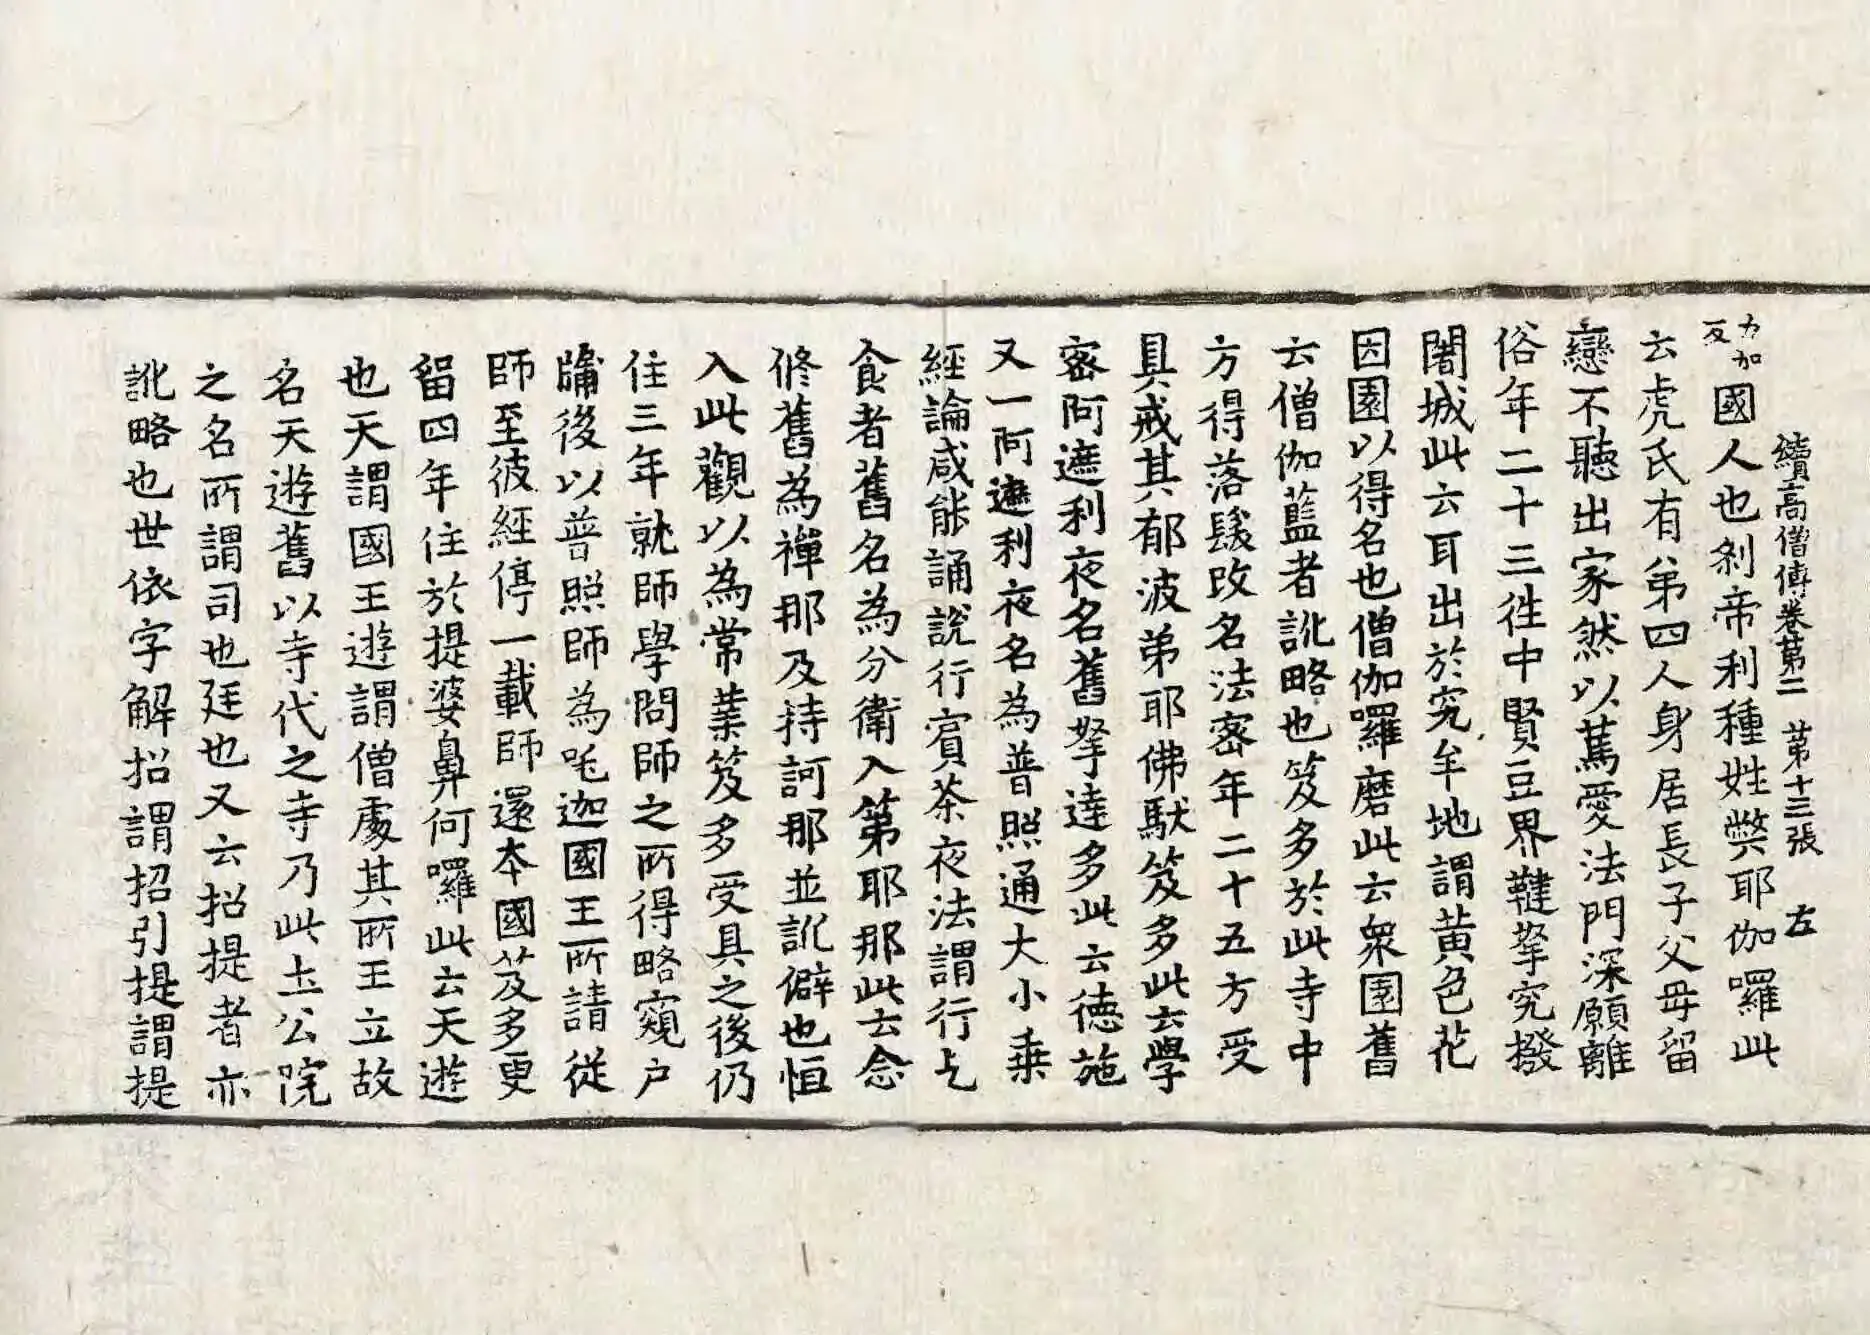 續高僧傳卷第二　第十三張　左
力加反國人也刹帝利種姓弊耶伽囉此
云虎氏有弟四人身居長子父母留
戀不聽出家然以篤愛法門深願離
俗年二十三徃中賢豆界鞬拏究撥
闍城此云耳出於究牟地謂黄色花
因園以得名也僧伽囉磨此云衆園舊
云僧伽藍者訛略也笈多於此寺中
方得落髮改名法密年二十五方受
具戒其郁波弟耶佛馱笈多此云學
密阿遮利夜名舊拏達多此云德施
又一阿遮利夜名為普照通大小乗
經論咸能誦說行賓茶夜法謂行乞
食者舊名為分衛入第耶那此云念
修舊為禪那及持訶那並訛僻也恒
入此觀以為常業笈多受具之後仍
住三年就師學問師之所得略窺户
牖後以普照師為吒迦國王所請従
師至彼經停一載師還本國笈多更
留四年住於提婆鼻何囉此云天遊
也天謂國王遊謂僧處其所王立故
名天遊舊以寺代之寺乃此土公院
之名所謂司也廷也又云招提者亦
訛略也世依字解招謂招引提謂提